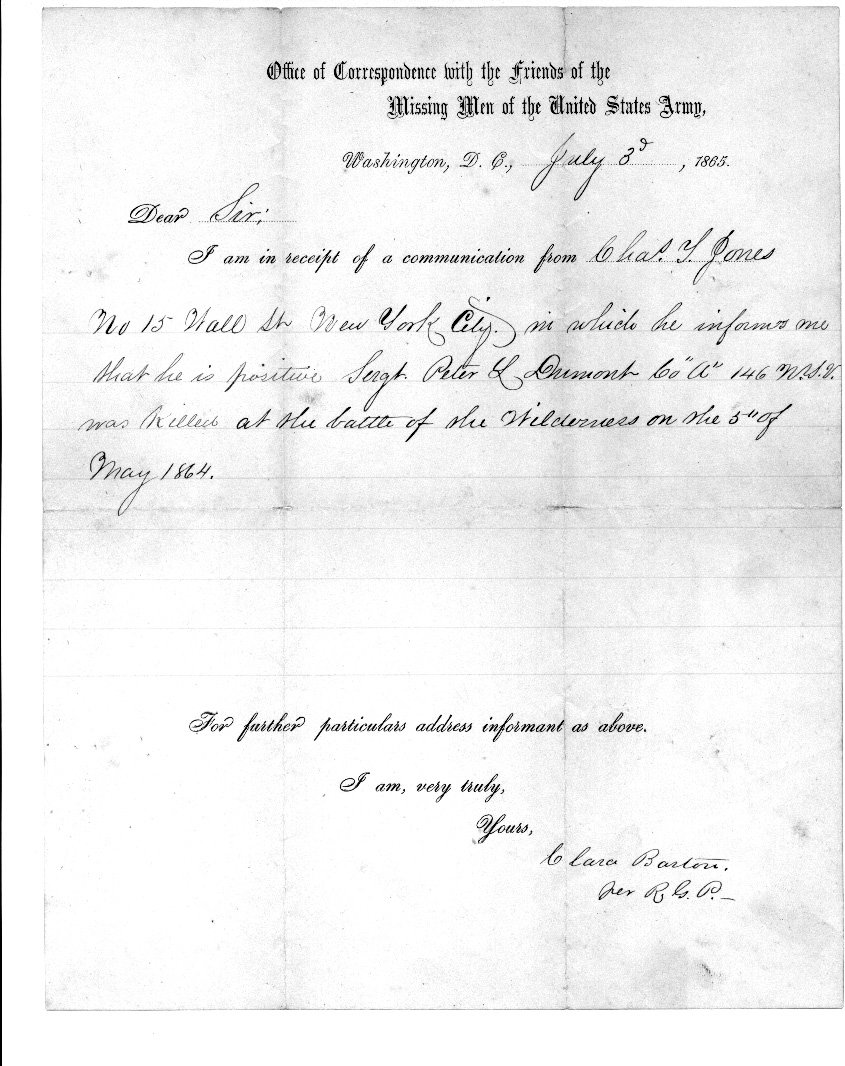 Office of Correspondence with the Friends of the
Missing Men of the United States Army,
Washington, D. C., July 3d, 1865.
Dear Sir;
I am in receipt of a communication from Chas. T. Jones
No 15 Wall St New York City. in which he informs me
that he is positive Sergt. Peter L Dumont Co "A" 146 N.Y.V.
was killed at the battle of the Wilderness on the 5" of
May 1864.
For further particulars address informant as above.
I am, very truly,
Yours,
Clara Barton.
per R. G. P. —